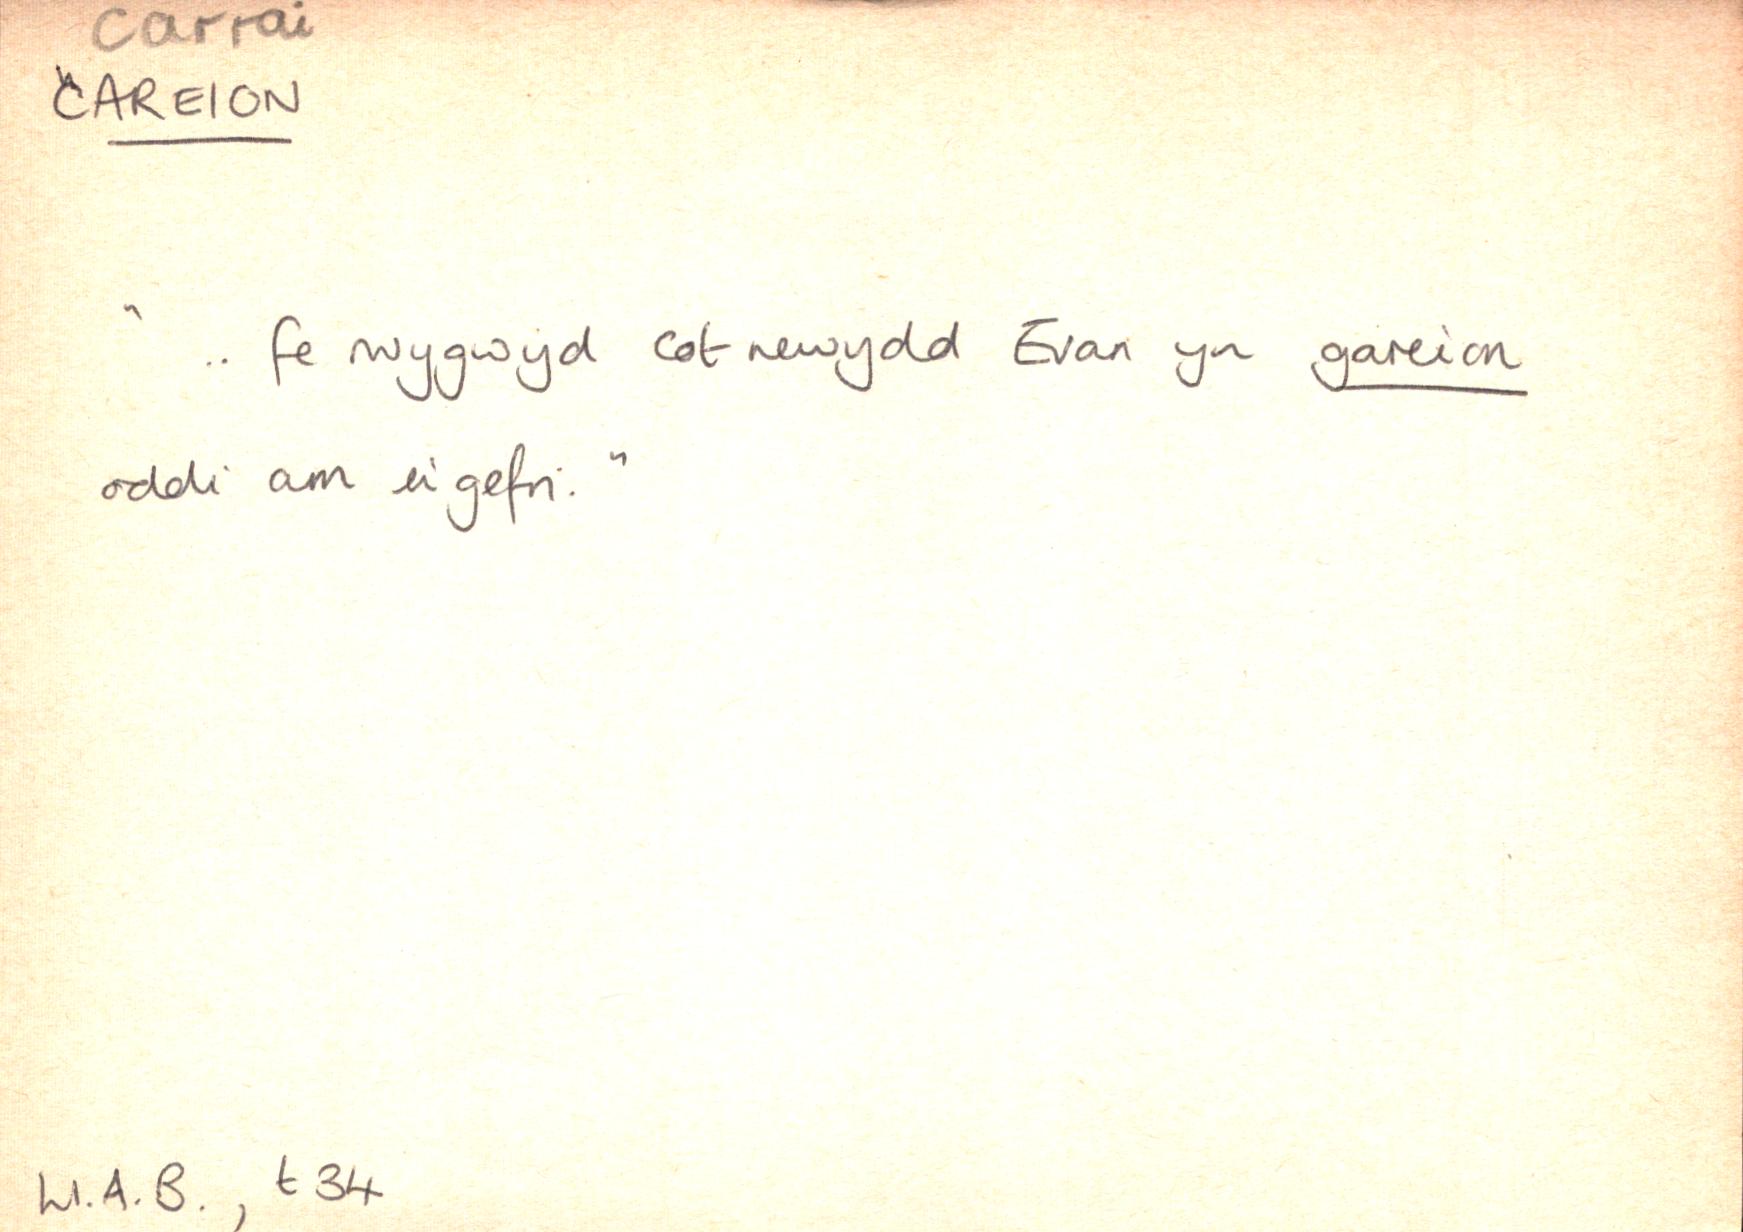 carrai
CAREION
".. fe rwygwyd cot newydd Evan yn gareion
oddi am ei gefn."
W.A.B., t 34